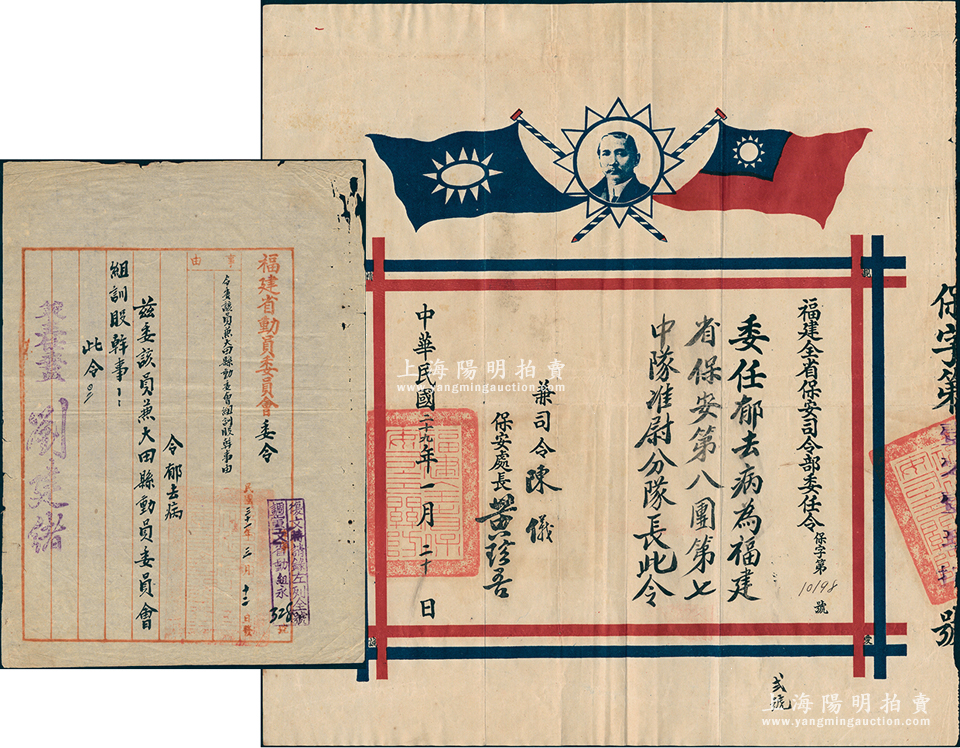 福建全省保安司令部委任令保字第10198號
委任郁去病為福建
省保安第八團第七
中隊准尉分隊長此令
兼司令陳儀
保安處長黃珍吾
中華民國二十九年一月二十日
弍號
保字第
號
福建省動員委員會委令
事由
令委該員兼大田縣動委會組訓股幹事由
民國三十一年三月十二日發
復文時請錄左列全號
328
令郁去病
茲委該員兼大田縣動員委員會
組訓股幹事！
此令。
兼主任委員
劉建緒
上海陽明拍賣
www.yangmingauction.com
上海陽明拍賣
www.yangmingauction.com